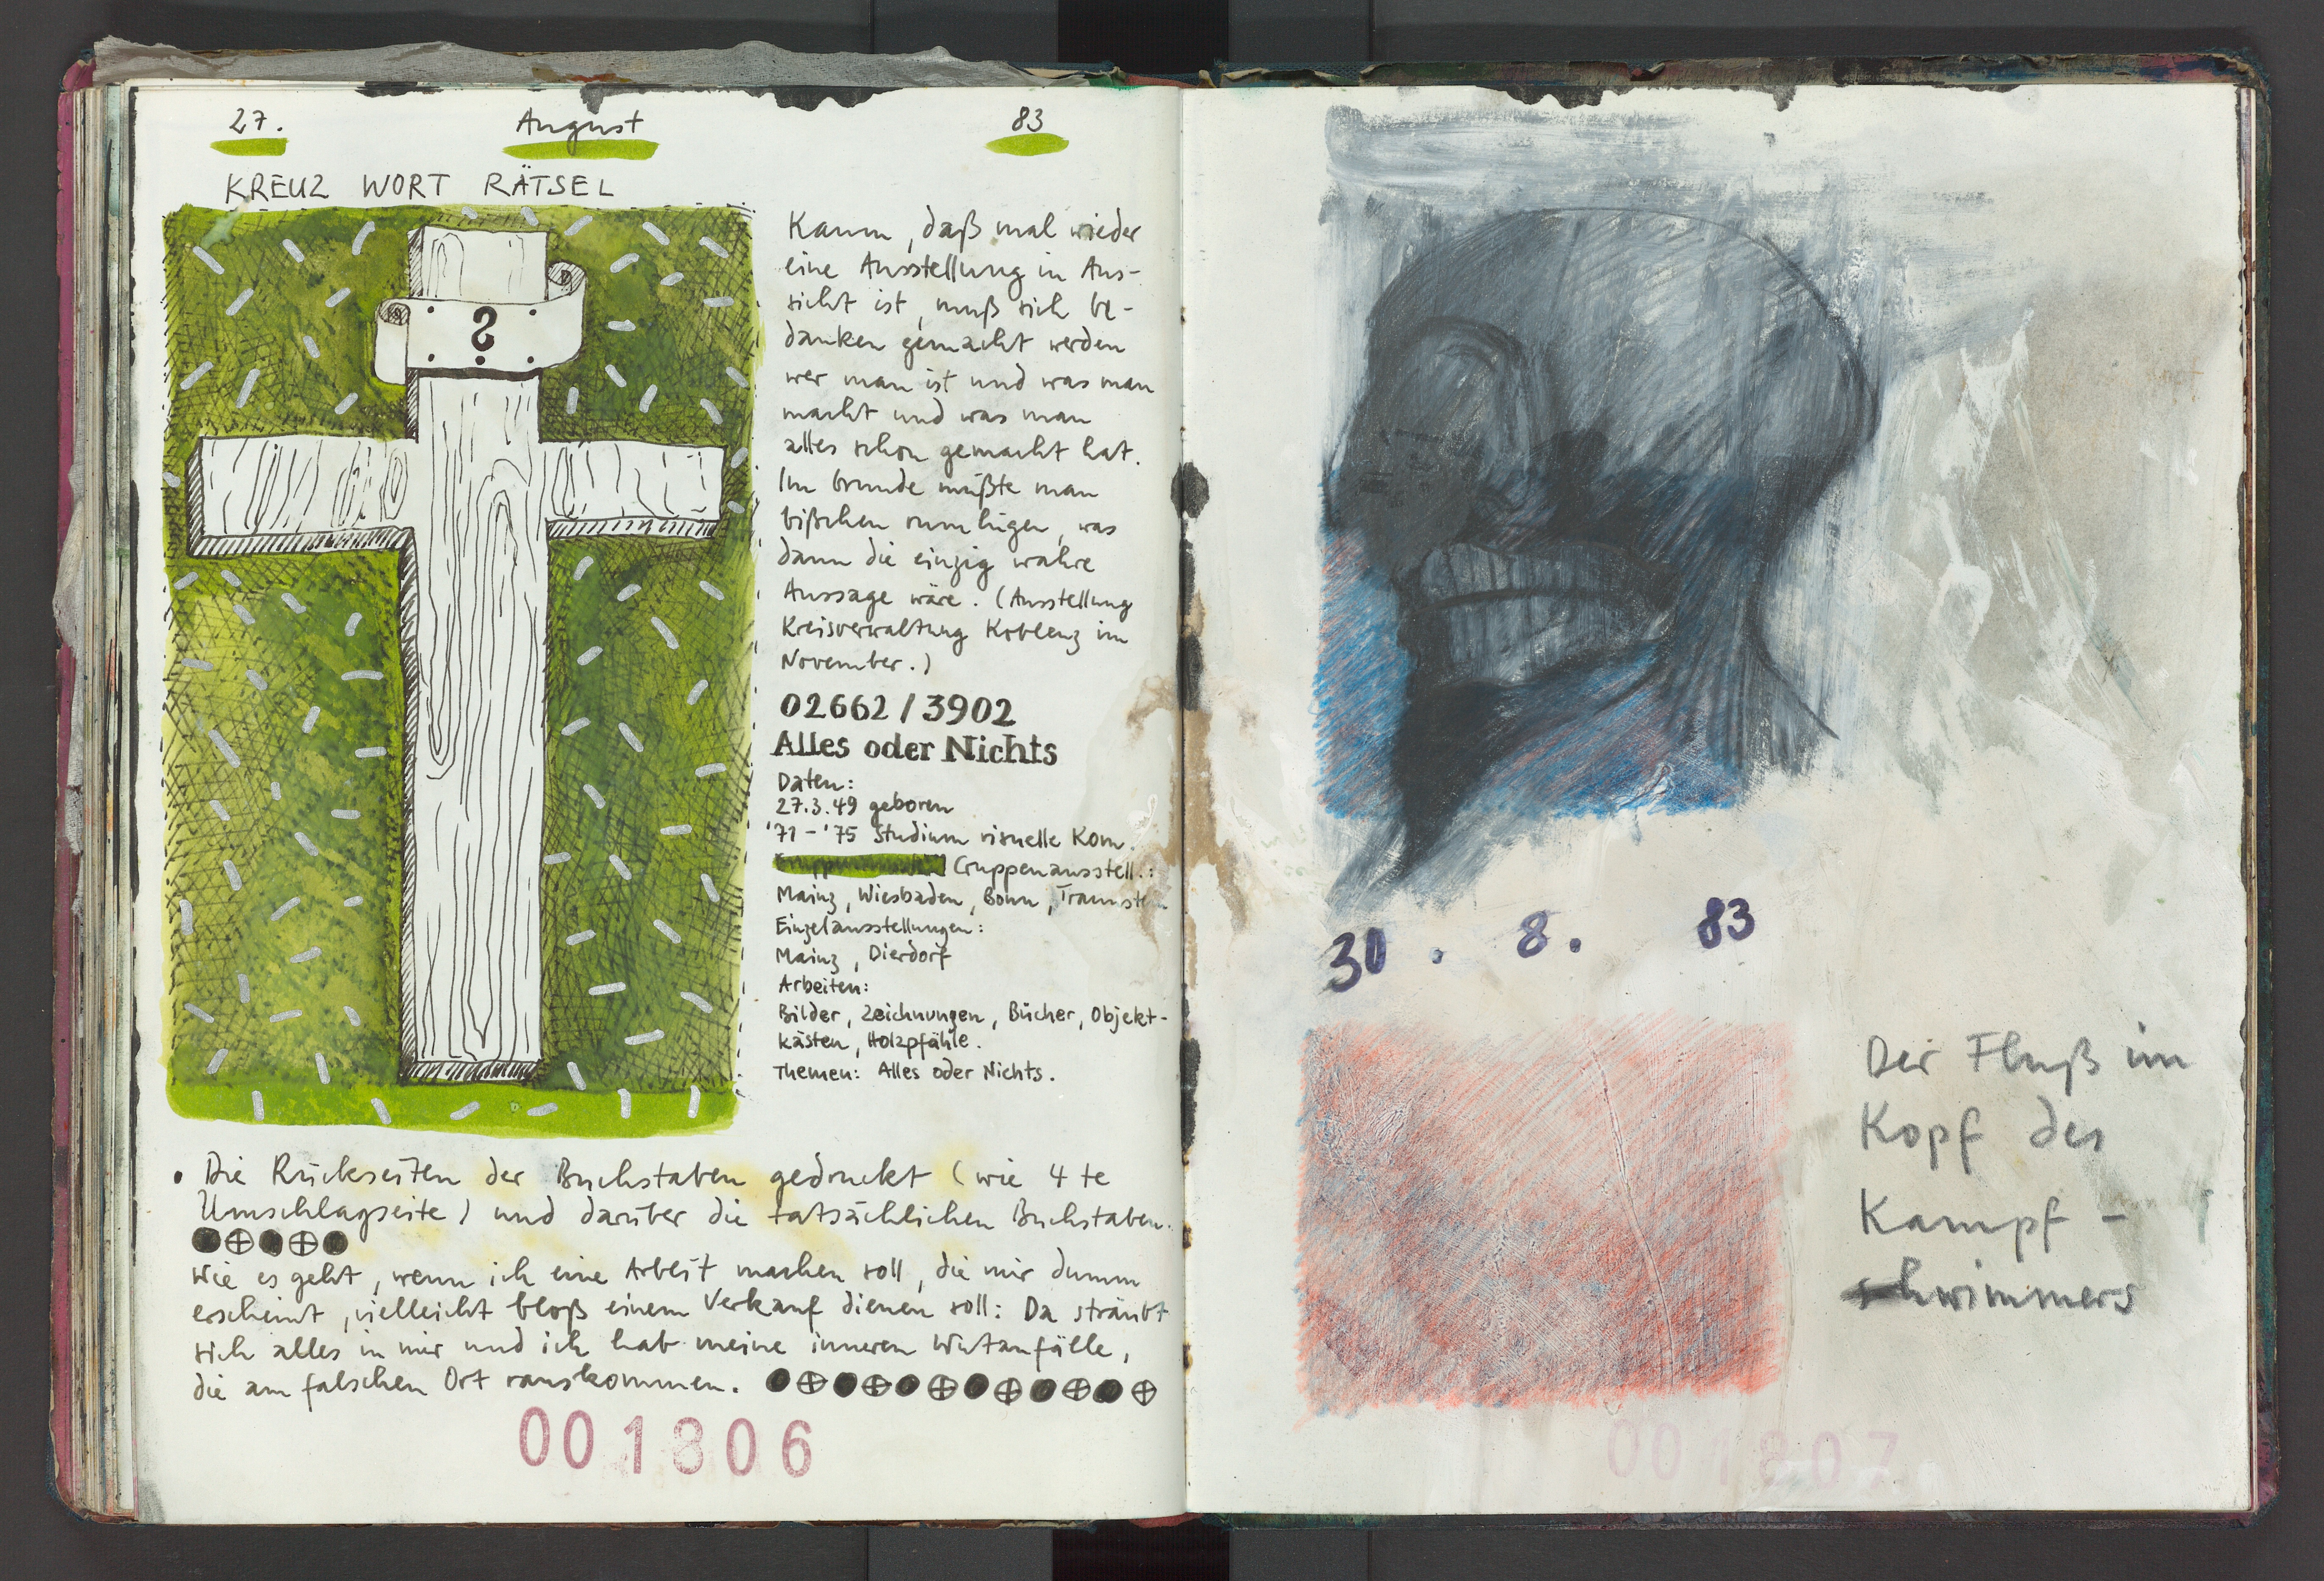 27. August 83
KREUZ WORT RÄTSEL
?
Kaum, daß mal wieder
eine Ausstellung in Aus-
sicht ist, muß sich Ge-
danken gemacht werden
wer man ist und was man
macht und was man
alles schon gemacht hat.
Im Grunde müßte man
bißchen rumlügen, was
dann die einzig wahre
Aussage wäre. (Ausstellung
Kreisverwaltung Koblenz im
November.)
02662/3902
Alles oder Nichts
Daten:
27.3.49 geboren
'71-'75 Studium visuelle Kom.
Gruppenausstell.:
Mainz, Wiesbaden, Bonn, Traunstein
Einzelausstellungen:
Mainz, Dierdorf
Arbeiten:
Bilder, Zeichnungen, Bücher, Objekt-
kästen, Holzpfähle.
Themen: Alles oder Nichts.
• Die Rückseiten der Buchstaben gedruckt (wie 4te
Umschlagseite) und darüber die tatsächlichen Buchstaben.
Wie es geht, wenn ich eine Arbeit machen soll, die mir dumm
erscheint, vielleicht bloß einem Verkauf dienen soll: Da sträubt
sich alles in mir und ich hab meine inneren Wutanfälle,
die am falschen Ort rauskommen.
001806
30. 8. 83
Der Fluß im
Kopf des
Kampf-
schwimmers
001807